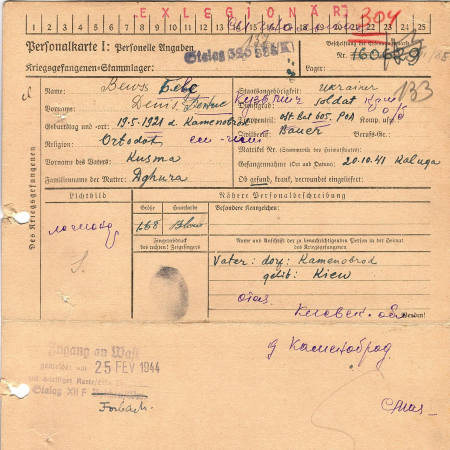 EXLEGIONÄR 304
1 2 3 4 5 6 7 8 9 10 11 12 13 14 15 16 17 18 19 20 21 22 23 24 25
Personalkarte I: Personelle Angaben
Stalag
Beschriftung der Erkennungsmarke
Kriegsgefangenen-Stammlager:
Lager:
133
Des Kriegsgefangenen
Name: Bews Бевз
Staatsangehörigkeit: ukrainer
Vorname: Denis Денис
Dienstgrad: soldat
Geburtstag und -ort: 19.5.1921 d. Kamenobrod
Truppenteil: Ost. Bat 605. POA Komp. usw.:
Religion: Ortodox
Zivilberuf: Bauer Berufs-Gr.:
Vorname des Vaters: Kusma
Matrikel Nr. (Stammrolle des Heimatstaates):
Gefangennahme (Ort und Datum): 20.10.41 Kaluga
Familienname der Mutter: Dghura
Ob gesund, krank, verwundet eingeliefert:
Lichtbild
Nähere Personalbeschreibung
Größe
Haarfarbe
Besondere Kennzeichen:
168
Fingerabdruck
des rechten! Zeigefingers
Name und Anschrift der zu benachrichtigenden Person in der Heimat
des Kriegsgefangenen
Vater: dorf: Kamenobrod
gebit: Kiew
отец
Киевск. обл.
Wenden!
д Каменоброд
Zugang an WASt
gemeldet mit 25 FEV 1944
Stalag XII F
Forbach.